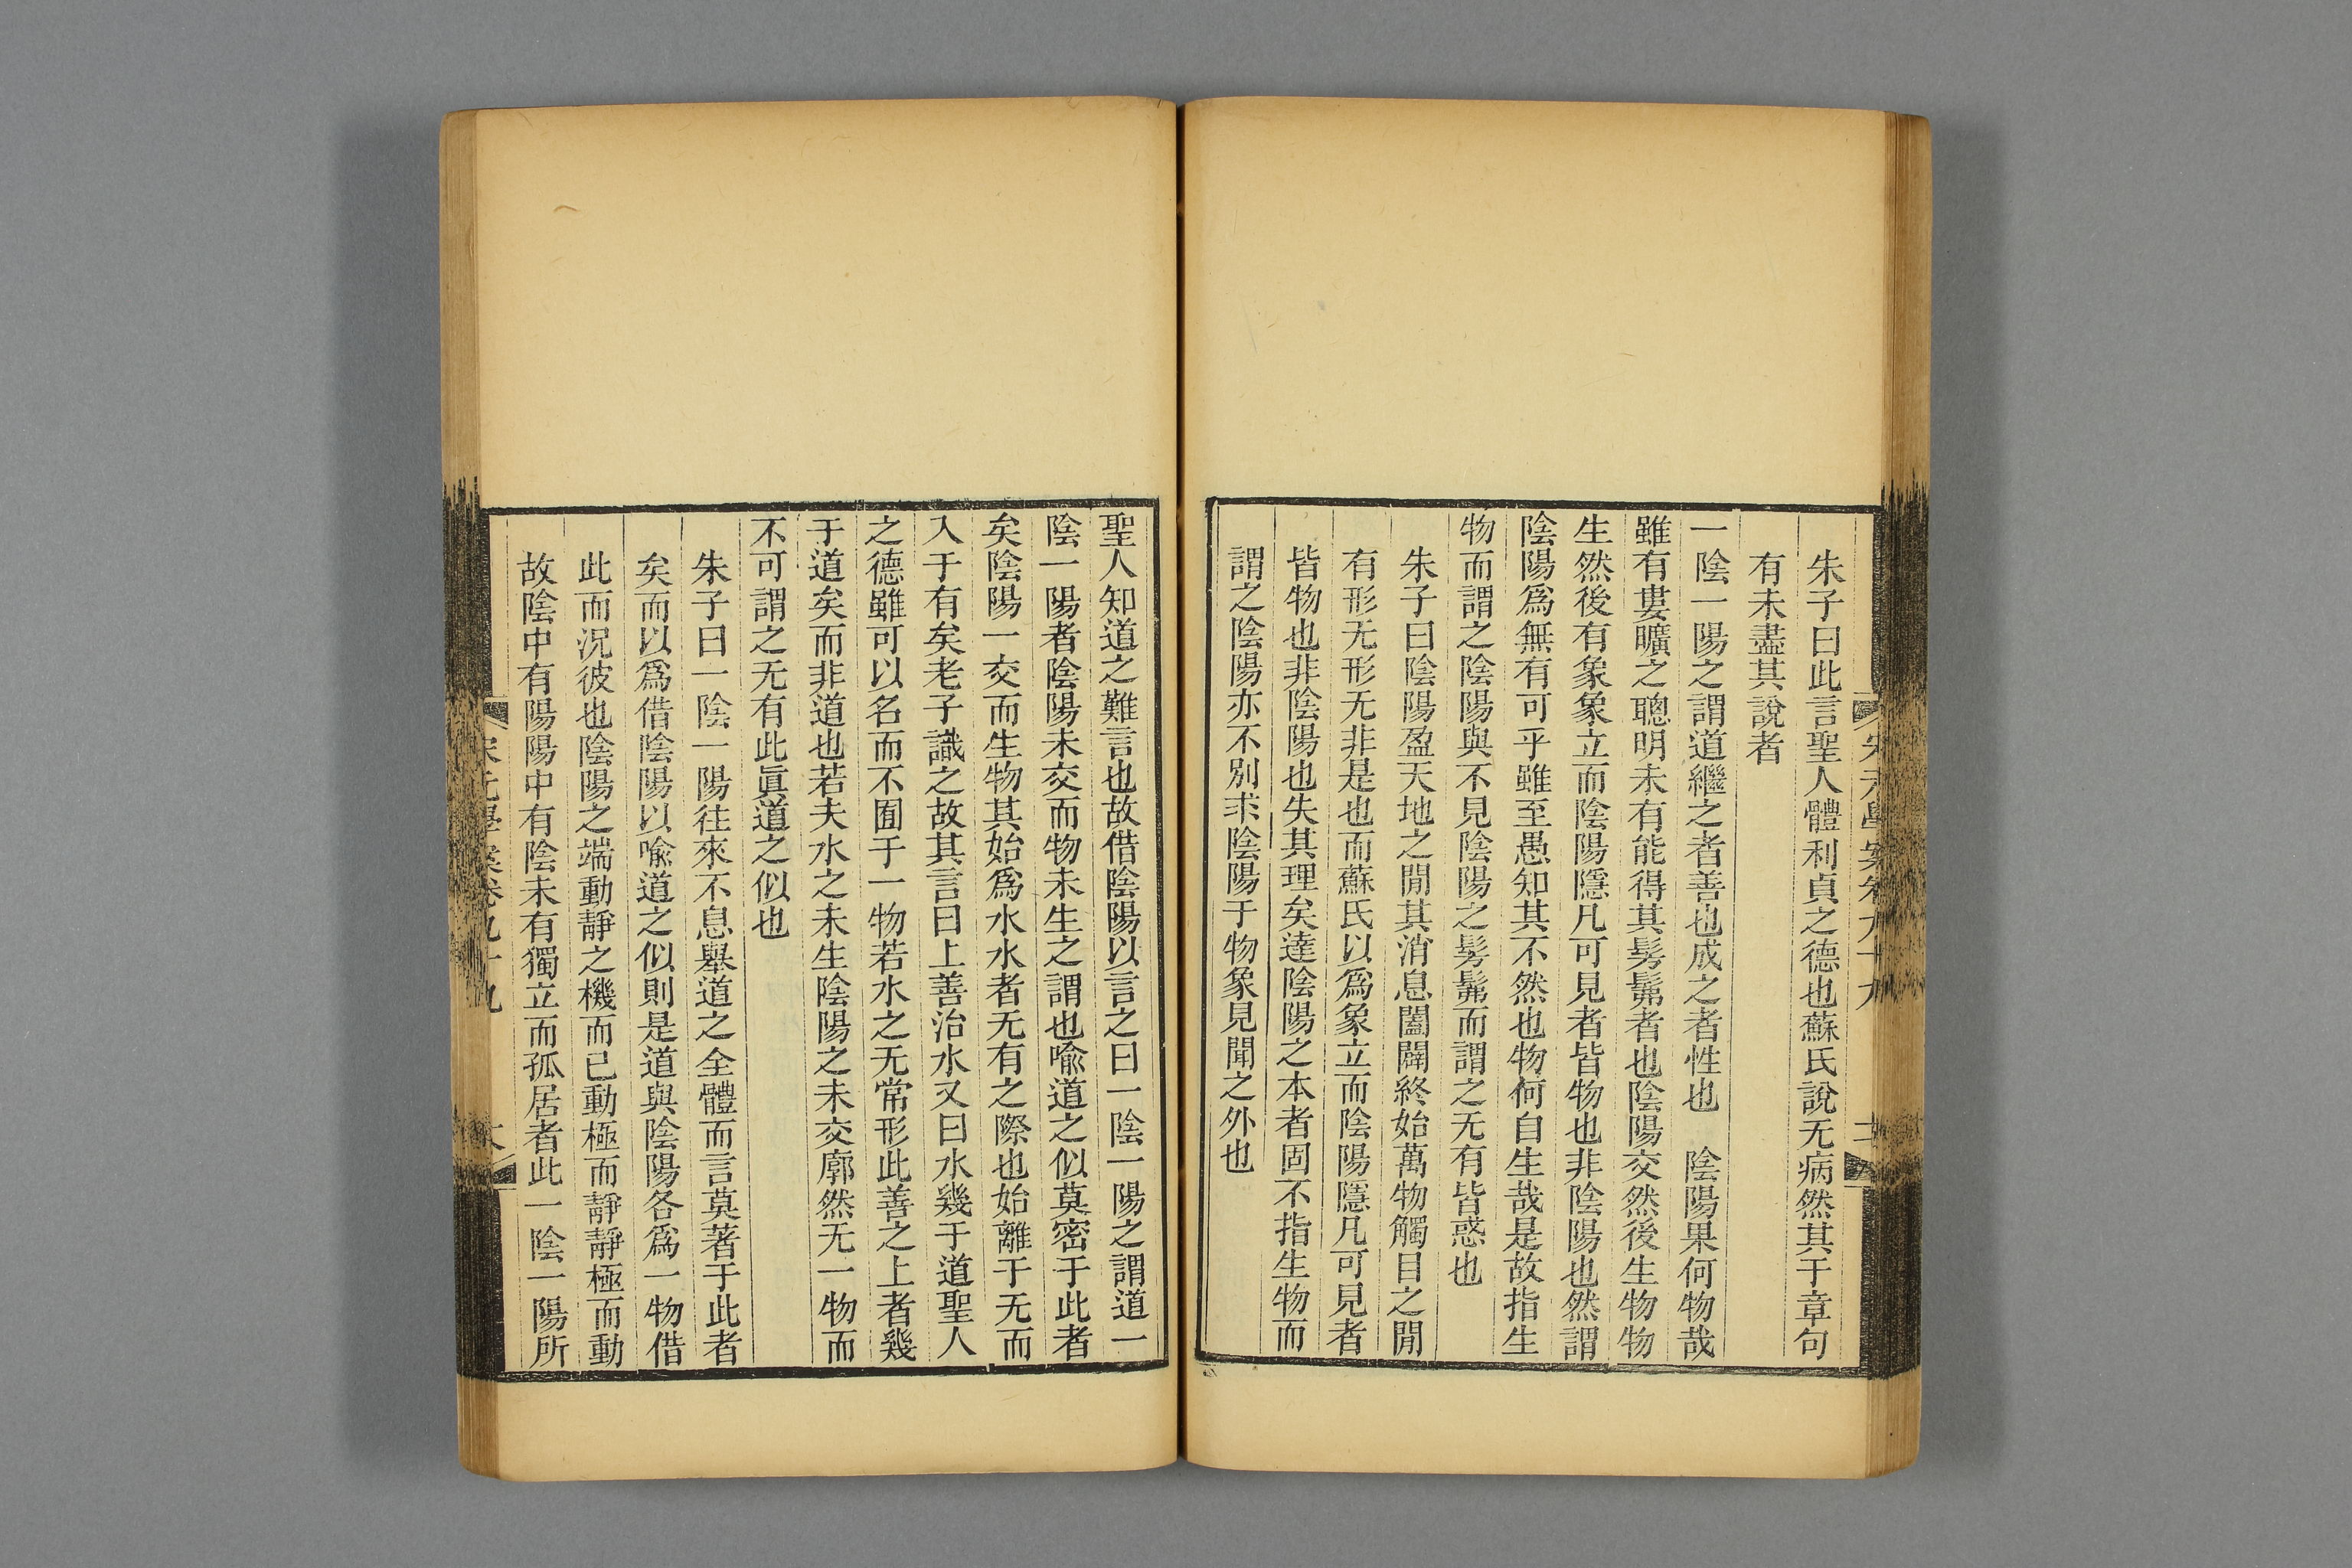 朱子曰此言聖人體利貞之德也蘇氏說无病然其于章句
有未盡其說者
一陰一陽之謂道繼之者善也成之者性也　陰陽果何物哉
雖有婁曠之聰明未有能得其髣髴者也陰陽交然後生物物
生然後有象象立而陰陽隱凡可見者皆物也非陰陽也然謂
陰陽爲無有可乎雖至愚知其不然也物何自生哉是故指生
物而謂之陰陽與不見陰陽之髣髴而謂之无有皆惑也
朱子曰陰陽盈天地之閒其消息闔闢終始萬物觸目之閒
有形无形无非是也而蘇氏以爲象立而陰陽隱凡可見者
皆物也非陰陽也失其理矣達陰陽之本者固不指生物而
謂之陰陽亦不別求陰陽于物象見聞之外也
聖人知道之難言也故借陰陽以言之曰一陰一陽之謂道一
陰一陽者陰陽未交而物未生之謂也喩道之似莫密于此者
矣陰陽一交而生物其始爲水水者无有之際也始離于无而
入于有矣老子識之故其言曰上善治水又曰水幾于道聖人
之德雖可以名而不囿于一物若水之无常形此善之上者幾
于道矣而非道也若夫水之未生陰陽之未交廓然无一物而
不可謂之无有此眞道之似也
朱子曰一陰一陽往來不息舉道之全體而言莫著于此者
矣而以爲借陰陽以喩道之似則是道與陰陽各爲一物借
此而況彼也陰陽之端動靜之機而已動極而靜靜極而動
故陰中有陽陽中有陰未有獨立而孤居者此一陰一陽所
宋元學案卷九十九